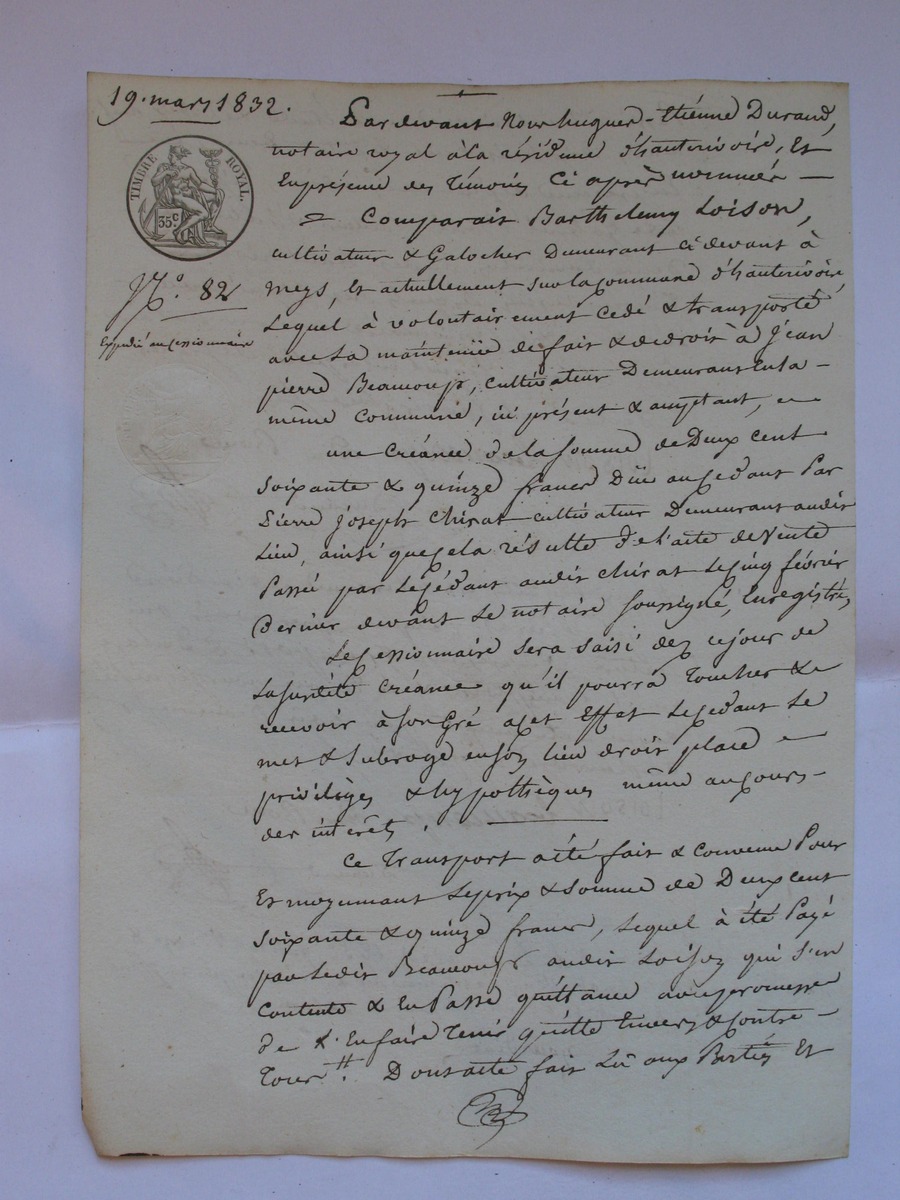 19. mars 1832.
TIMBRE ROYAL.
35.c
N.o 82
Expédié au cessionnaire
Pardevant Nous hugues-étiénne Durand,
notaire royal à la résidence d'hauterivoire, Et
En présence des témoins Ci après nommés —
= Comparait Barthelemy Loison,
cultivateur & Galocher Demeurant Ci devant à
meys, Et actuellement sur la Commune d'hauterivoire,
Lequel à volontairement Cedé & transporté
avec la maintenüe de fait & de droit à Jean
pierre Beaucoup, cultivateur Demeurant En la —
même Commune, ici présent & acceptant, —
une Créance de la somme de Deux cent
soixante & quinze francs Düe au Cédant Par
Pierre joseph Chirat cultivateur Demeurant audit
Lieu, ainsi que cela résulte de l'acte de Vente
Passé par le Cédant audit Chirat le cinq février
Dernier devant le notaire soussigné, Enregistré,
Le Cessionnaire sera saisi dez ce jour de
la surdite Créance qu'il pourra Toucher &
recevoir à son Gré a cet Effet le Cédant le
met & subroge en son lieu droit place —
priviléges & hypothèques même au cours —
des intérêts. —
Ce Transport a été fait & Convenu Pour
Et moyennant le prix & somme de Deux cent
soixante & quinze francs, Lequel à été Payé
par ledit Beaucoup audit Loison qui s'en
Contente & En Passe quittance avec promesse
de l'En faire tenir quitte Envers & Contre —
Tous. Dont acte fait Lû aux Parties Et